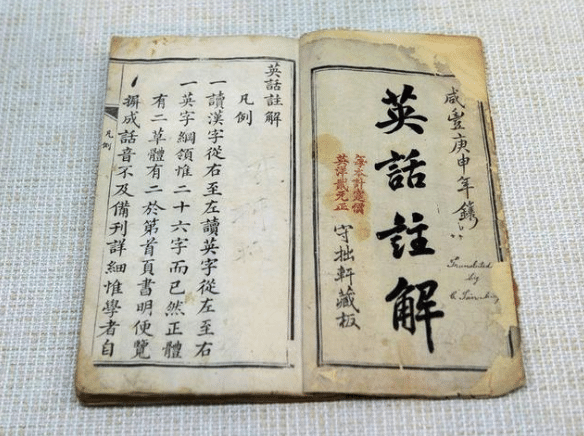 咸豐庚申年鐫
英話註解
守拙軒藏板
每本計實價
英洋貳元正
Translated
by
英話註解
凡例
一讀漢字從右至左讀英字從左至右
一英字綱領惟二十六字而已然正體
有二草體有二於第首頁書明便覽
摒成話音不及備刊詳細惟學者自
凡例